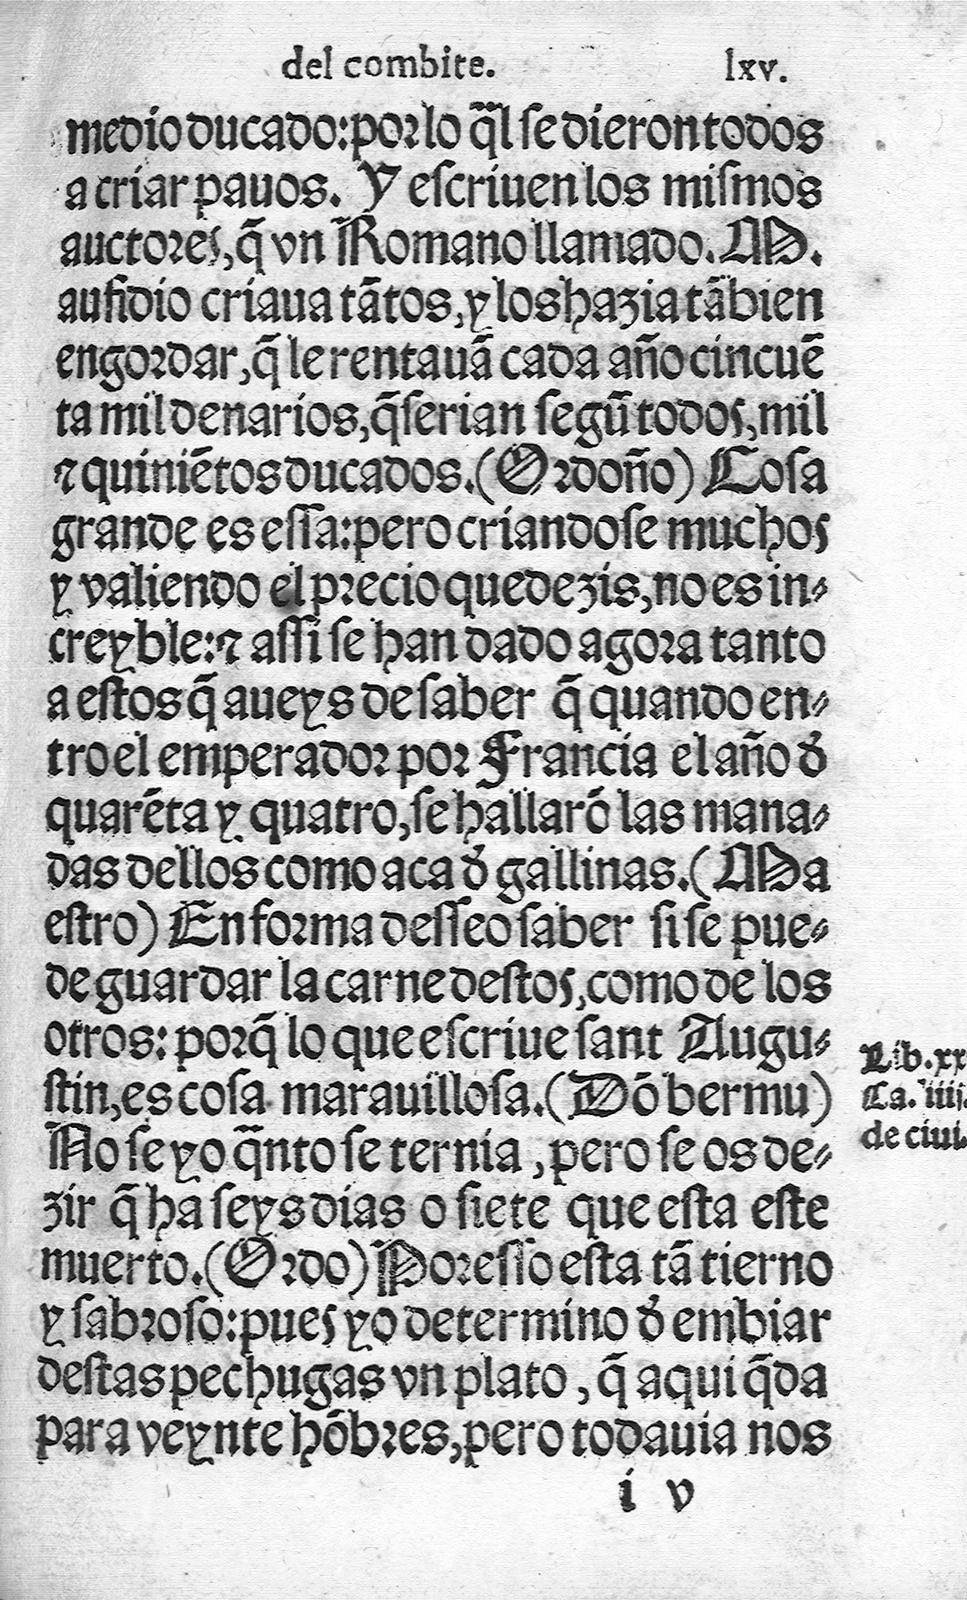 del combite. lxv.
medio ducado: por lo q̃l se dieron todos
a criar pauos. Y escriuen los mismos
auctores, q̃ vn Romano llamado. M.
aufidio criaua tãtos, y los hazia tãbien
engordar, q̃ le rentauã cada año cincuẽ
ta mil denarios, q̃ serian segũ todos, mil
⁊ quiniẽtos ducados. (Ordoño) Cosa
grande es essa: pero criandose muchos
y valiendo el precio que dezis, no es in-
creyble: ⁊ assi se han dado agora tanto
a estos q̃ aueys de saber q̃ quando en-
tro el emperador por Francia el año đ
quarẽta y quatro, se hallarõ las mana-
das dellos como aca đ gallinas. (Ma
estro) En forma desseo saber si se pue-
de guardar la carne destos, como de los
otros: porq̃ lo que escriue sant Augu-
stin, es cosa marauillosa. (Dõ bermu)
No se yo q̃nto se ternia, pero se os de-
zir q̃ ha seys dias o siete que esta este
muerto. (Ordo) Por esso esta tã tierno
y sabroso: pues yo determino đ embiar
destas pechugas vn plato, q̃ aqui q̃da
para veynte hõbres, pero todauia nos
i v
Lib. xx
Ca. iiij.
de ciui.